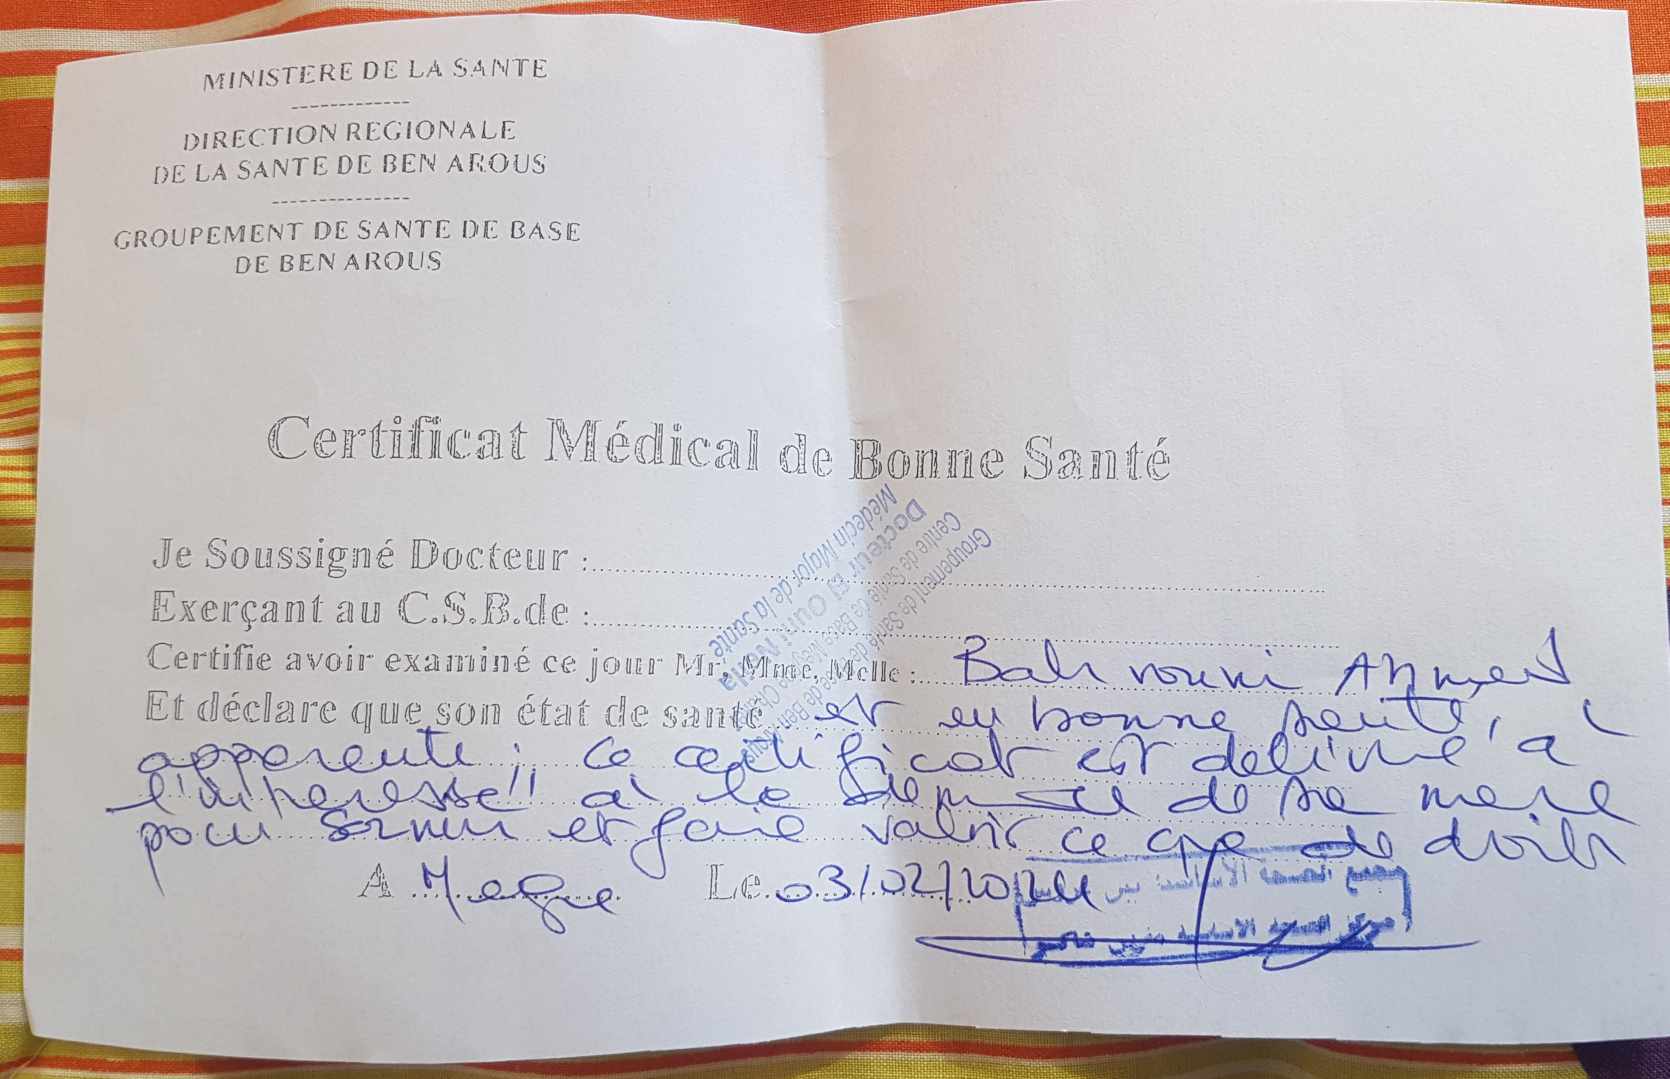 MINISTERE DE LA SANTE
-------------
DIRECTION REGIONALE
DE LA SANTE DE BEN AROUS
---------------
GROUPEMENT DE SANTE DE BASE
DE BEN AROUS
Certificat Médical de Bonne Santé
Je Soussigné Docteur :
Exerçant au C.S.B.de :
Médecin Major de la Santé
Docteur El Ouni
Centre de Santé de Base
Groupement de Santé de Base de Ben Arous
Certifie avoir examiné ce jour Mr, Mme, Melle : Ahmed
Et déclare que son état de santé est en bonne santé,
apparente ; ce certificat est délivré à
l'intéressé à la demande de sa mère
pour servir et faire valoir ce que de droit
A Le 03/02/2024
مجمع الصحة الأساسية ببن
مركز الصحة الأساسية